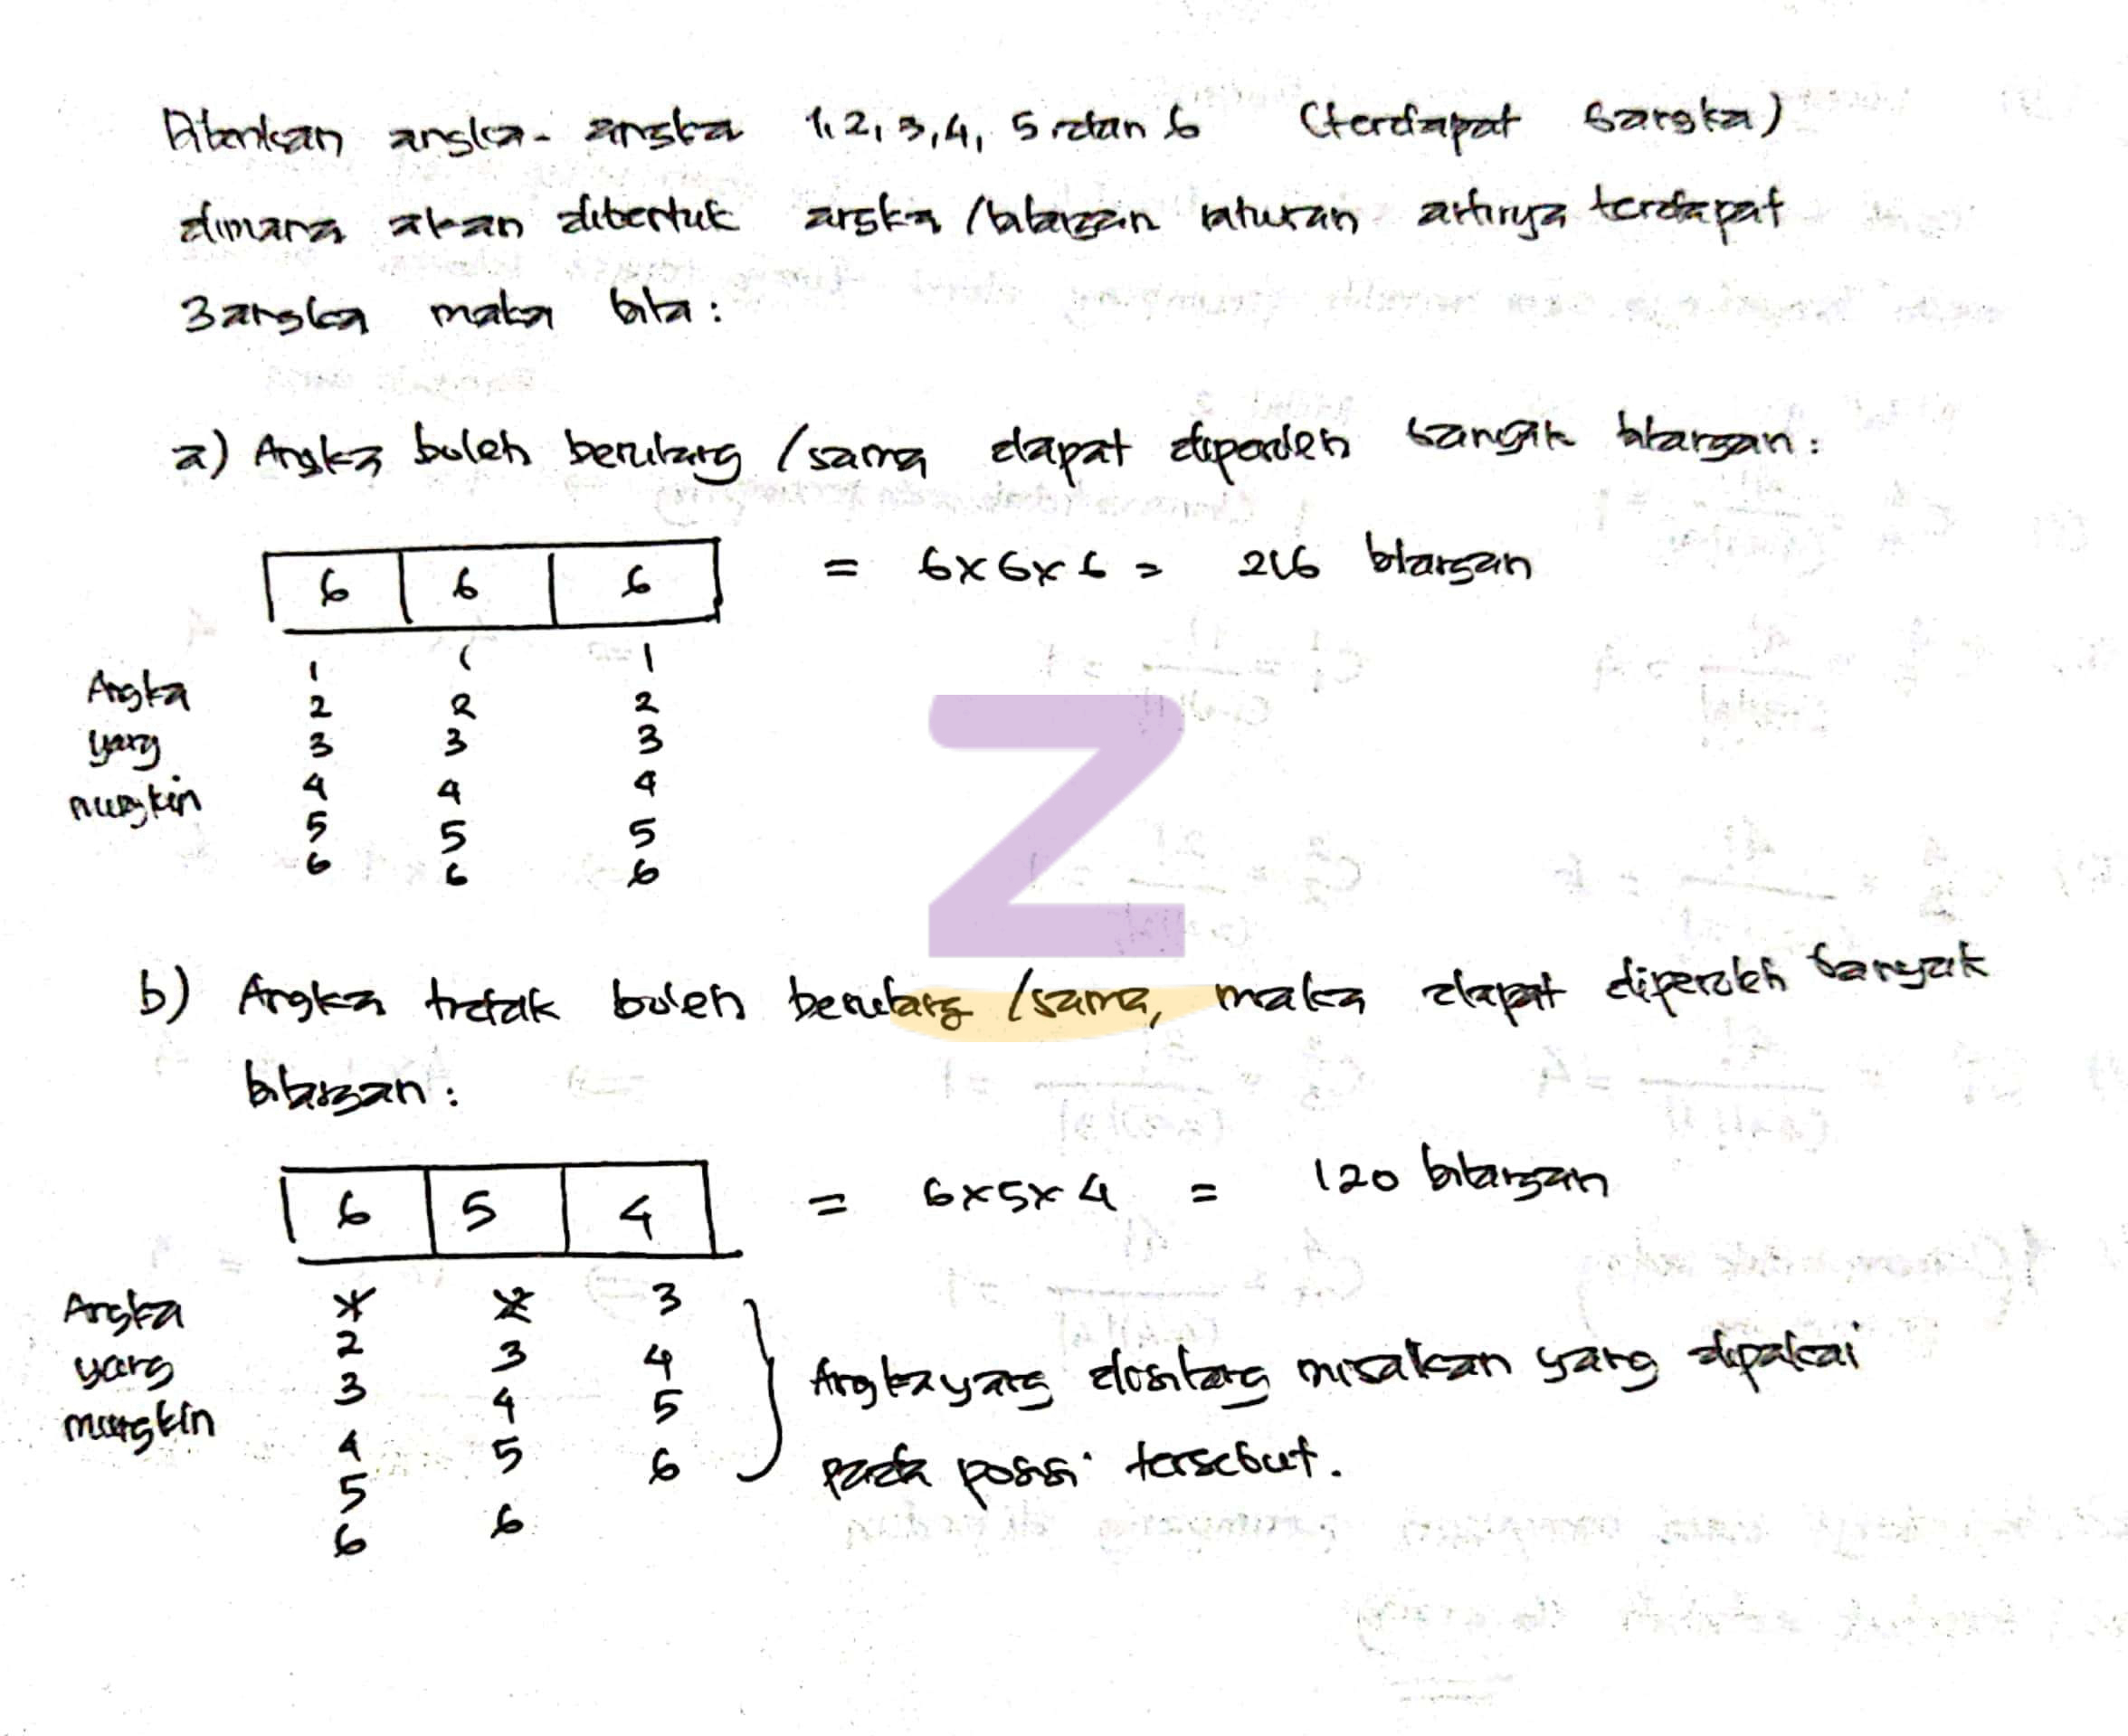 Diberikan angka-angka 1, 2, 3, 4, 5, dan 6 (terdapat 6 angka)
dimana akan dibentuk angka /bilangan ratusan artinya terdapat
3 angka maka bila:
a) Angka boleh berulang /sama dapat diperoleh banyak bilangan:
6 6 6 = 6×6×6 = 216 bilangan
Angka yang mungkin
1 1 1
2 2 2
3 3 3
4 4 4
5 5 5
6 6 6
b) Angka tidak boleh berulang /sama, maka dapat diperoleh banyak
bilangan:
6 5 4 = 6×5×4 = 120 bilangan
Angka yang mungkin
1 2 3
2 3 4
3 4 5
4 5 6
5 6
6
Angka yang disilang misalkan yang dipakai
pada posisi tersebut.
Z